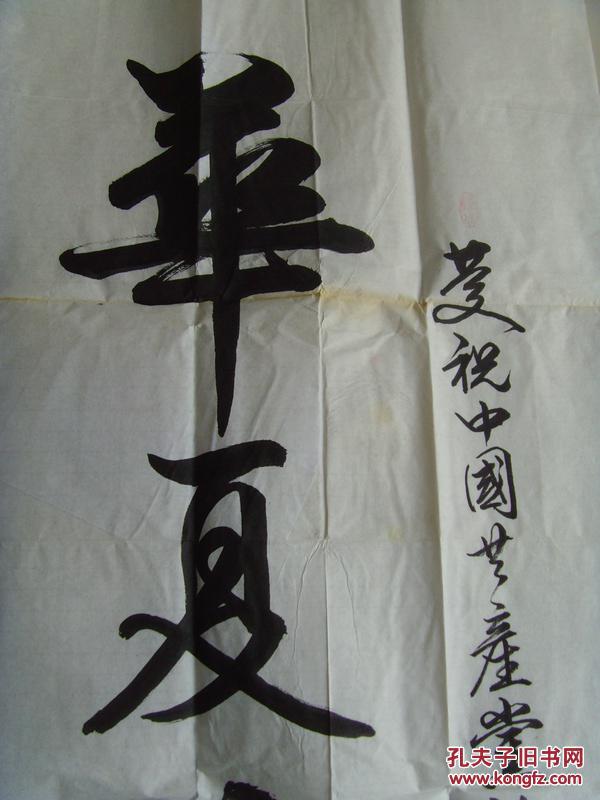 慶祝中國共產黨
華夏
孔夫子旧书网
www.kongfz.com